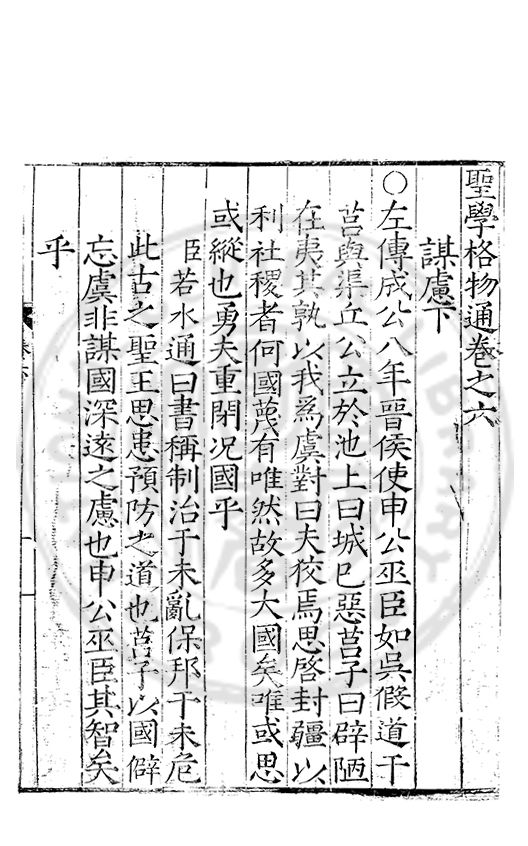 聖學格物通卷之六
謀慮下
○左傳成公八年晉侯使申公巫臣如吳假道于
莒與渠丘公立於池上曰城已惡莒子曰辟陋
在夷其孰以我爲虞對曰夫狡焉思啓封疆以
利社稷者何國蔑有唯然故多大國矣唯或思
或縱也勇夫重閉况國乎
臣若水通曰書稱制治于未亂保邦于未危
此古之聖王思患預防之道也莒子以國僻
忘虞非謀國深遠之慮也申公巫臣其智矣
乎